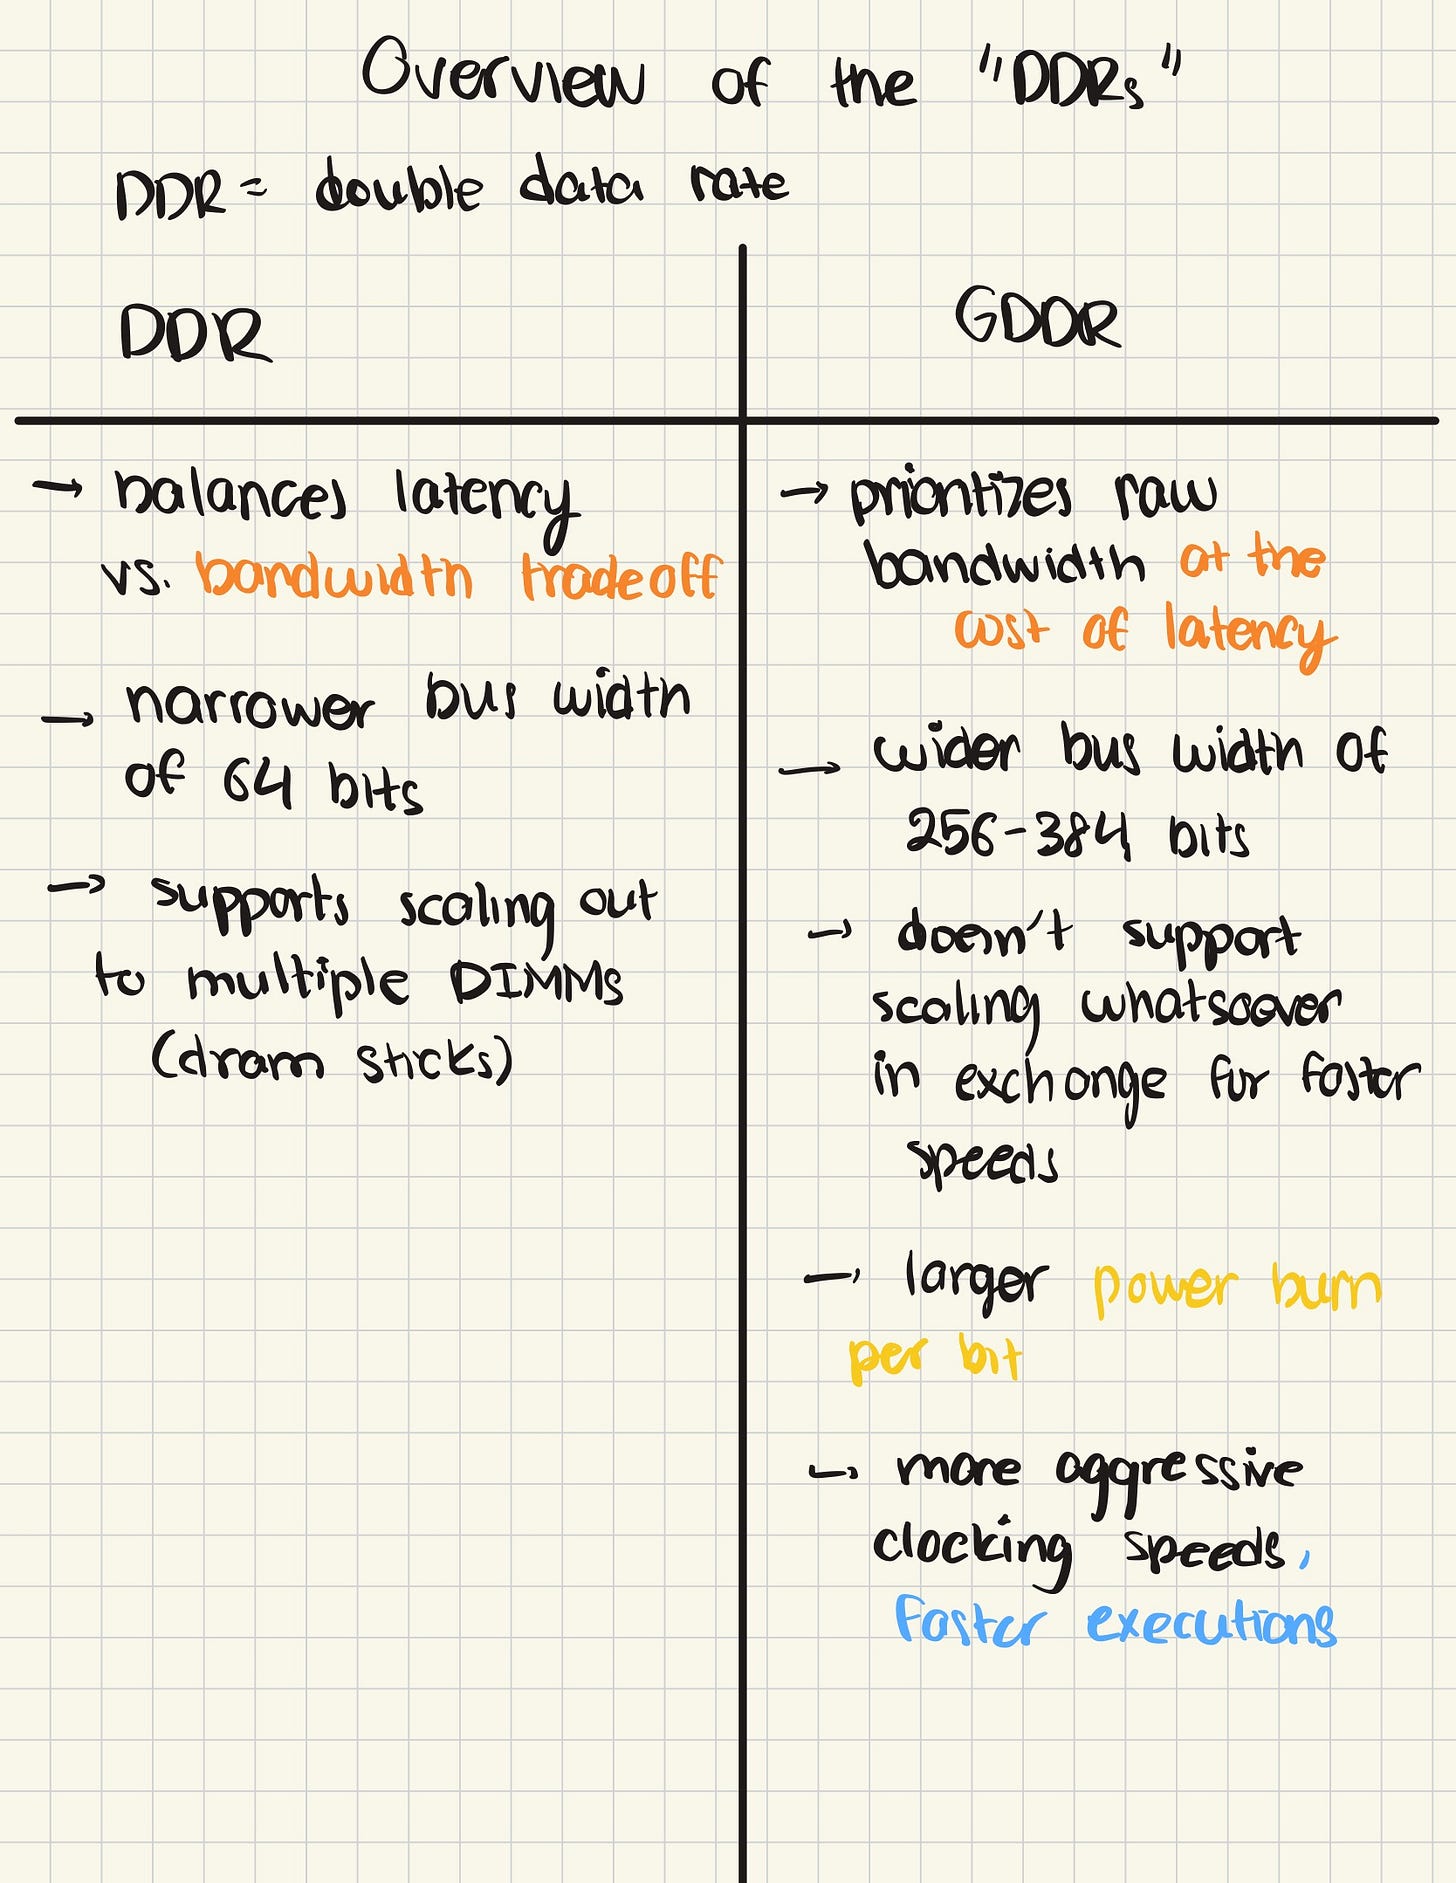 Overview of the "DDRs"
DDR = double data rate
DDR
→ balances latency
vs. bandwidth tradeoff
→ narrower bus width
of 64 bits
→ supports scaling out
to multiple DIMMs
(dram sticks)
GDDR
→ prioritizes raw
bandwidth at the
cost of latency
→ wider bus width of
256-384 bits
→ doesn't support
scaling whatsoever
in exchange for faster
speeds
→ larger power burn
per bit
→ more aggressive
clocking speeds,
faster executions